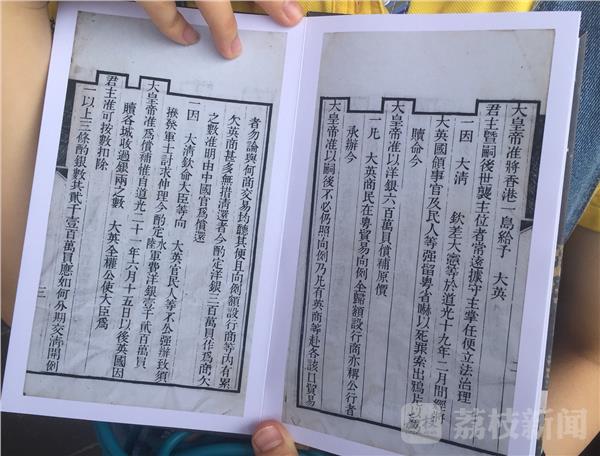 大皇帝准將香港一島給予　大英
君主暨嗣後世襲主位者常遠據守主掌任便立法治理
一因　大清　欽差大憲等於道光十九年二月間經將
大英國領事官及民人等強留粵省嚇以死罪索出鴉片以爲
贖命今
大皇帝准以洋銀六百萬員償補原價
一凡　大英商民在粵貿易向例全歸額設行商亦稱公行者
承辦今
大皇帝准以嗣後不必仍照向例乃凡有英商等赴各該口貿易
者勿論與何商交易均聽其便且向例額設行商等內有累
欠英商甚多無措清還者今酌定洋銀三百萬員作爲商欠
之數准明由中國官爲償還
一因　大清欽命大臣等向　大英官民人等不公強辦致須
撥發軍士討求伸理今酌定水陸軍費洋銀壹千貳百萬員
大皇帝准爲償補惟自道光二十一年六月十五日以後英國因
贖各城收過銀兩之數　大英全權公使大臣爲
君主准可按數扣除
一以上三條酌銀數共貳千壹百萬員應如何分期交清開列
三
荔枝新闻